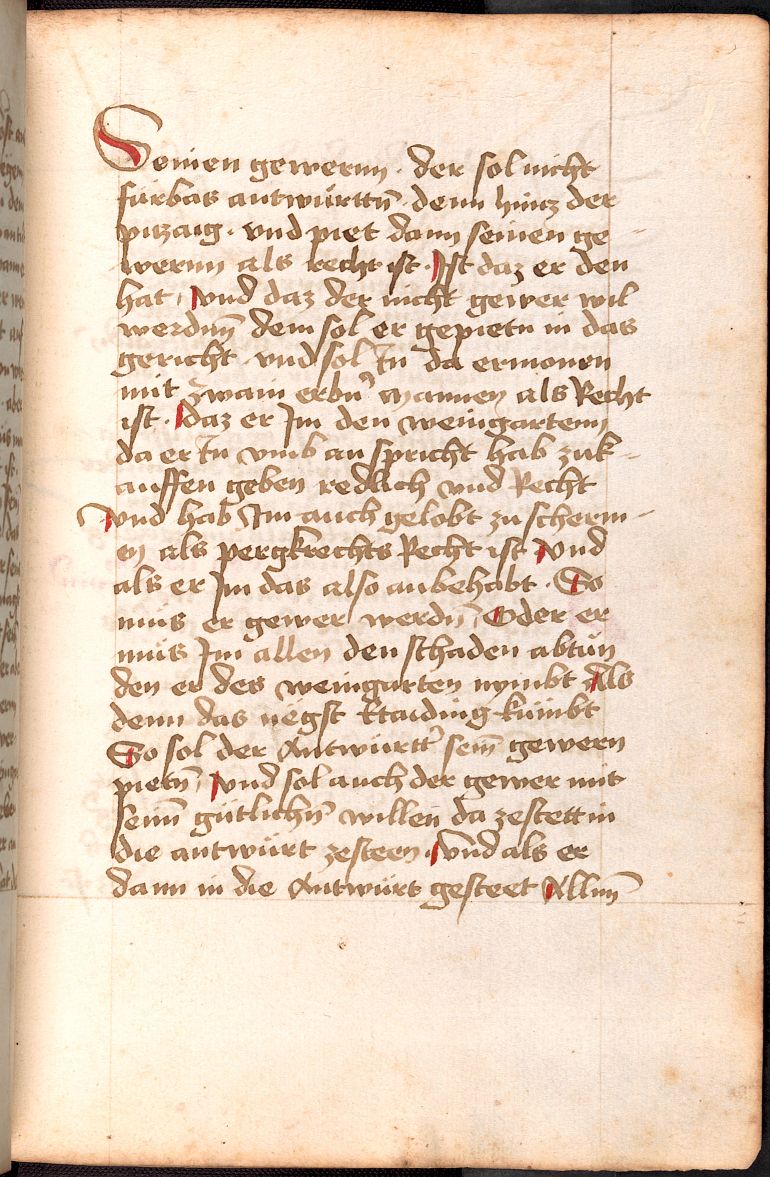 Seinen gewernn · der sol nicht
fürbas antwürttn̄ · denn hincz der
inzaig · vnd piet dann seinen ge-
wernn als recht ist · Ist daz er den
hat, vnd daz der nicht gewer wil
werdnn̄ dem sol er gepietn in das
gericht · vnd sol In da ermonen
mit zwain erbn̄ mannen als Recht
ist · daz er Im den weingartenn
da er In vmb an spricht hab zuk-
auffen geben redlich vnd Recht
vnd hab Im auch gelobt zu scherm-
en als pergkrechts Recht ist vnd
als er Im das also anbehabt · So
muis er gewer werdn̄ Oder er
muis Im allen den schaden abtün
den er des weingarten nymbt Als
denn das negst Etaiding kumbt
So sol der Antwürtt̄ sein̄ gewern
pietn̄, vnd sol auch der gewer mit
seinn̄ gütlichn̄ willen da zestett in
die antwürt zesteen · vnd als er
dann in die Antwürt gesteet Allnn̄